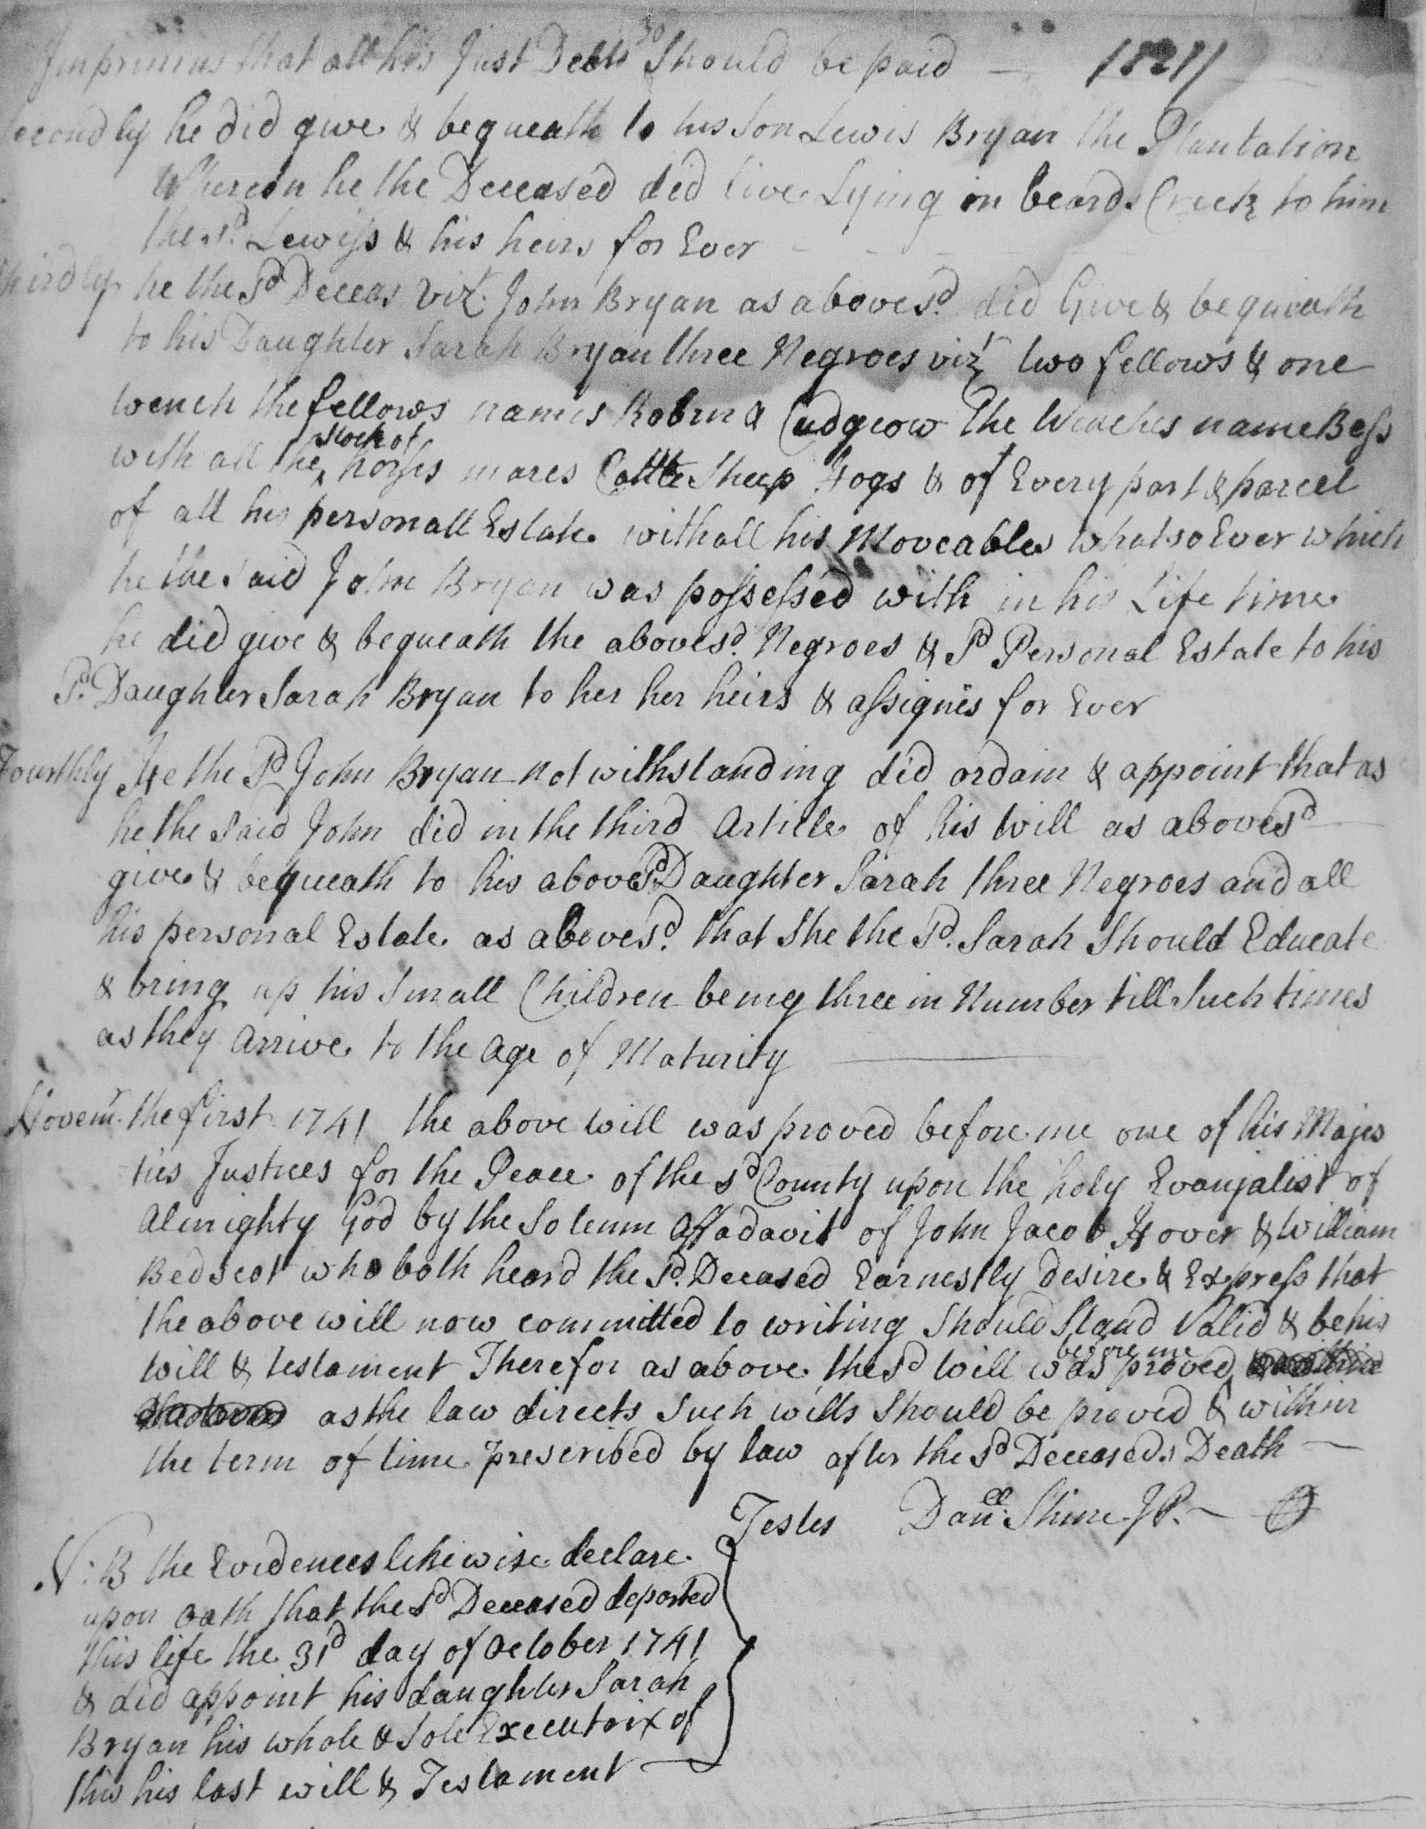 Imprimus that all his Just Debts Should be paid — 
Secondly he did give & bequeath to his son Lewis Bryan the Plantation
Whereon he the Deceased did live Lying on beards Creek to him
the sd. Lewiss & his heirs for Ever
thirdly he the sd Deceas Vizt. John Bryan as abovesd. did Give & bequeath
to his Daughter Sarah Bryan three Negroes vizt two fellows & one
wench the fellows names Robin & Cudgeow The Wenches name Bess
with all the stock of horses mares Cattle Sheep Hogs & of Every part & parcel
of all his personall Estate with all his Moveables whatsoEver which
he the said John Bryan was possessed with in his Life time
he did give & bequeath the abovesd. Negroes & sd Personal Estate to his
sd. Daughter Sarah Bryan to her her heirs & assignis for Ever
Fourthly He the sd John Bryan notwithstanding did ordain & appoint that as
he the said John did in the third Article of his Will as abovesd
give & bequeath to his abovesd. Daughter Sarah three Negroes and all
his personal Estate as abovesd. that She the sd. Sarah Should Educate
& bring up his Small Children being three in Number till Such times
as they Arrive to the Age of Maturity
Novemr. the first 1741 the above will was proved before me one of his Majes
ties Justices for the Peace of the sd County upon the holy Evanjalist of
Almighty God by the Solemn Affadavit of John Jacob Hover & William
Bedscot who both heard the sd. Deceased Earnestly desire & Express that
the above will now committed to writing Should Stand Valid & be his
Will & testament Therefor as above the sd will was proved before me
as the law directs Such wills Should be proved & within
the term of time prescribed by law after the sd Deceaseds Death —
Testes Danll. Shine JP. —
N:B the Evidences likewise declare
upon oath that the sd Deceased departed
this life the 31d day of October 1741
& did appoint his daughter Sarah
Bryan his whole & Sole Executrix of
this his last will & Testament